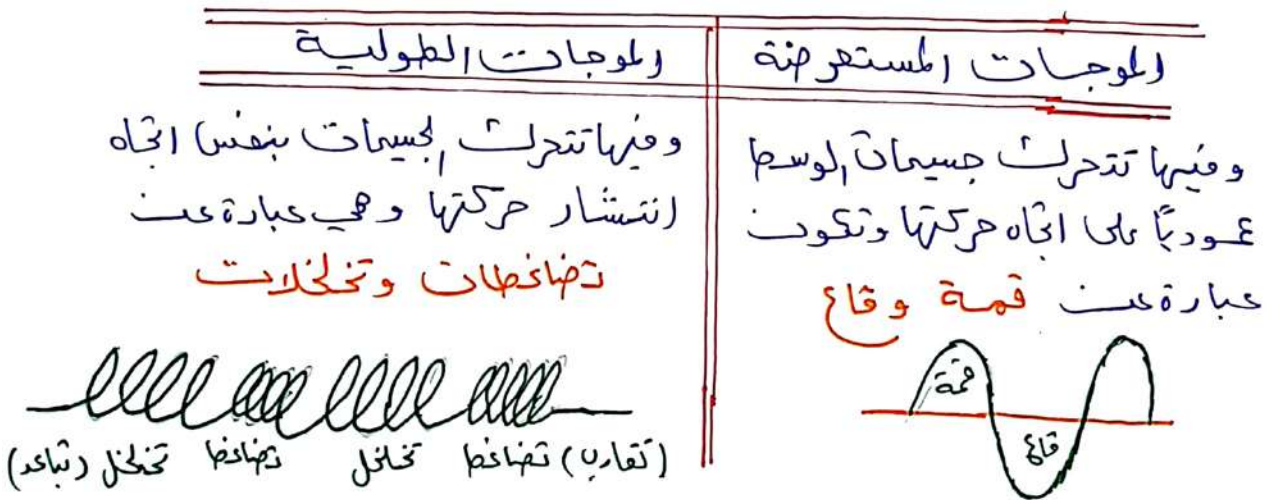 الموجات المستعرضة
وفيها تتحرك جسيمات الوسط
عموديًا على اتجاه حركتها وتكون
عبارة عن قمة وقاع
قمة
قاع
الموجات الطولية
وفيها تتحرك الجسيمات بنفس اتجاه
انتشار حركتها وهي عبارة عن
تضاغطات وتخلخلات
(تقارب) تضاغط تخلخل تضاغط تخلخل (تباعد)